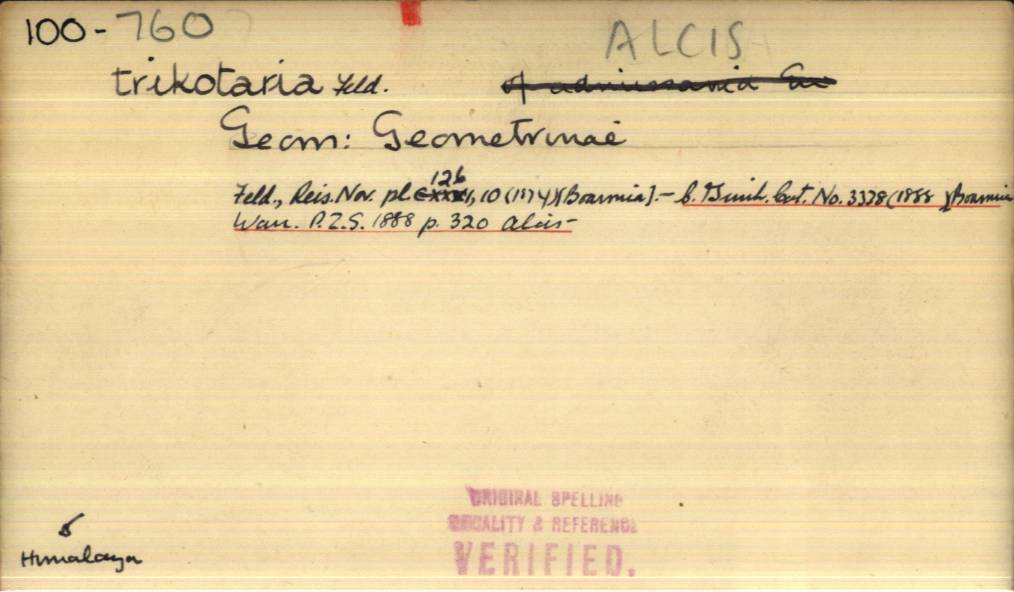 100-760
ALCIS
trikotaria Feld.
Geom: Geometrinae
126
Feld., Reis. Nov. pl. 10 (1874) [Boarmia]. - C. Swinh. Cat. No. 3328 (1888) [Boarmia
Warr. P.Z.S. 1888 p. 320 Alcis -
ORIGINAL SPELLING
LOCALITY & REFERENCE
VERIFIED.
Himalaya